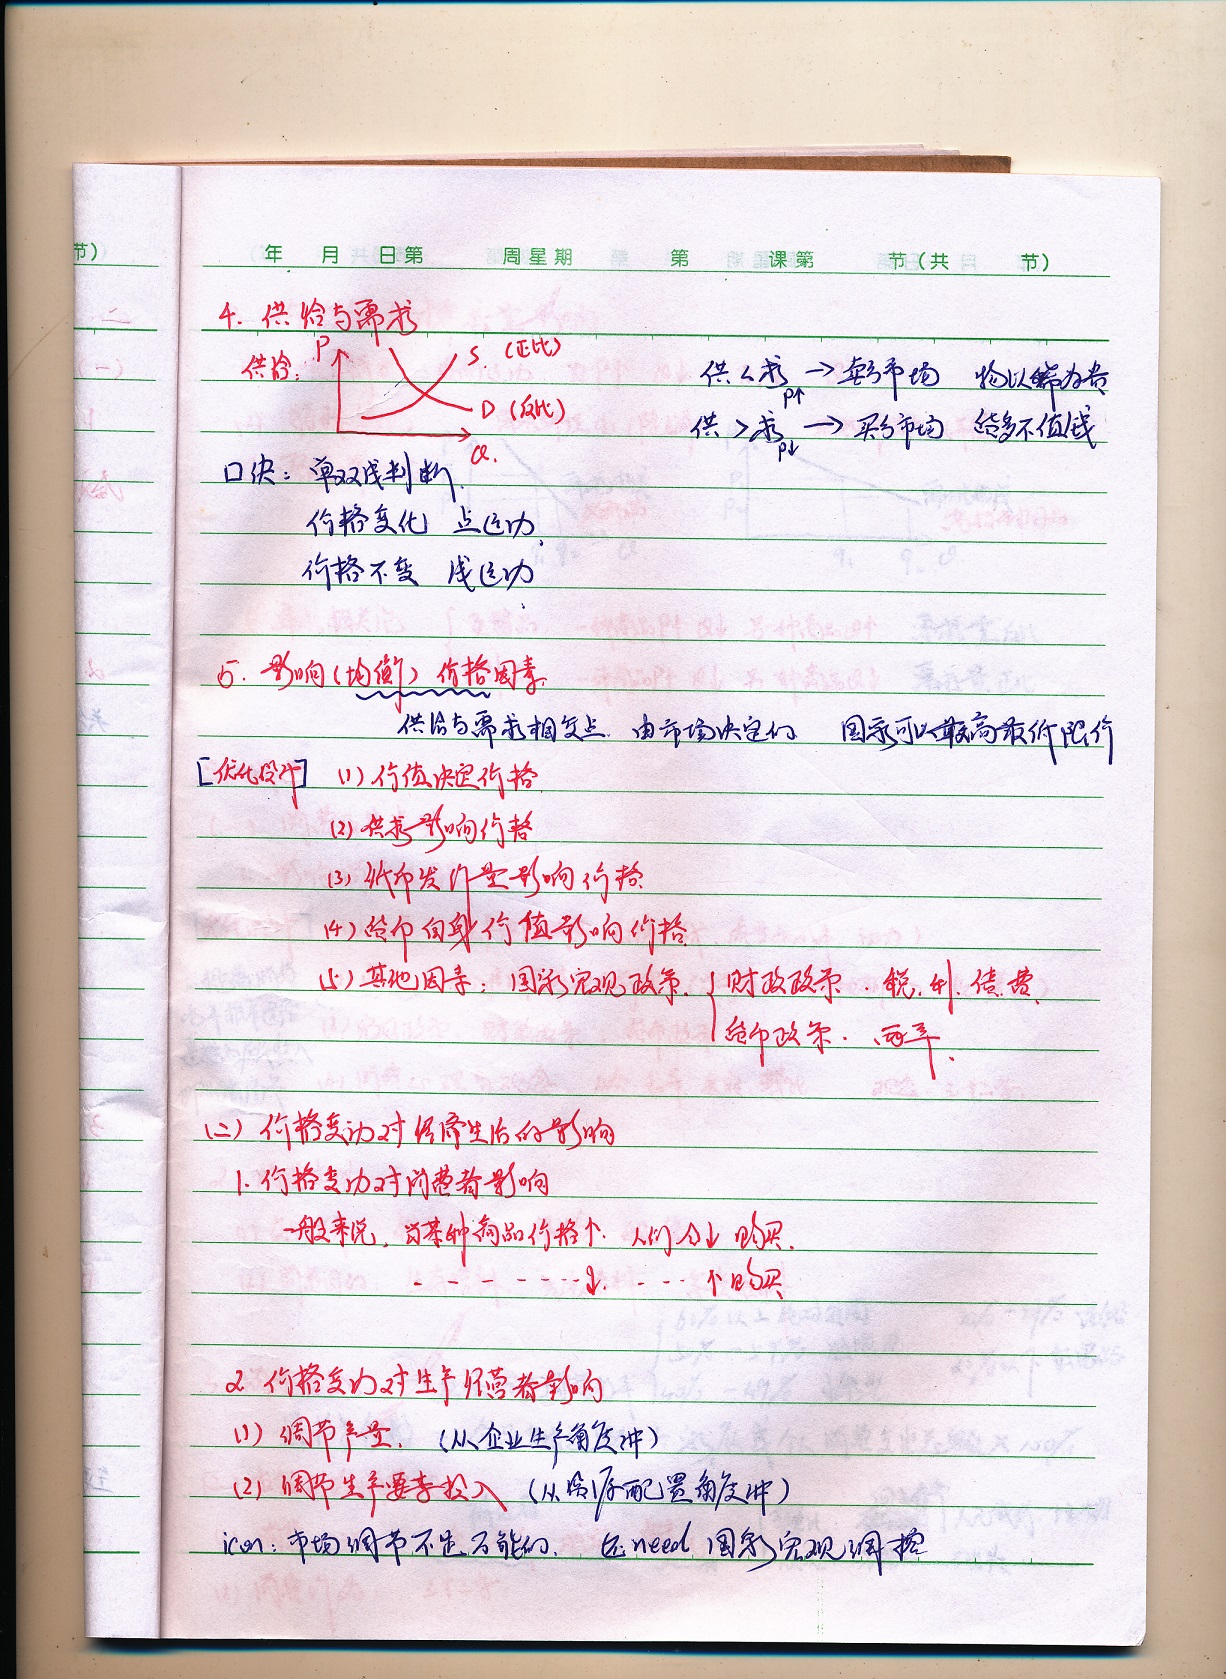 节)
年 月 日第 周星期 第 课第 节(共 节)
4. 供给与需求
供给: P S (正比)
D (反比)
Q.
供<求 P↑ → 卖方市场 物以稀为贵
供>求 P↓ → 买方市场 货多不值钱
口决: 单双线判断.
价格变化 点运动,
价格不变 线运动,
5. 影响(均衡)价格因素.
供给与需求相交点. 由市场决定的 国家可以最高最低限价
[优化设计] (1) 价值决定价格.
(2) 供求影响价格
(3) 纸币发行量影响价格.
(4) 货币自身价值影响价格.
(5) 其他因素: 国家宏观政策. { 财政政策. 税. 利. 债. 费.
货币政策.
(二) 价格变动对经济生活的影响
1. 价格变动对消费者影响
一般来说, 当某种商品价格↑. 人们会↓购买.
- - - - - - - ↓. - - - ↑购买
2. 价格变动对生产经营者影响
(1) 调节产量. (从企业生产角度讲)
(2) 调节生产要素投入 (从资源配置角度讲)
icon: 市场调节不是万能的. 还need 国家宏观调控